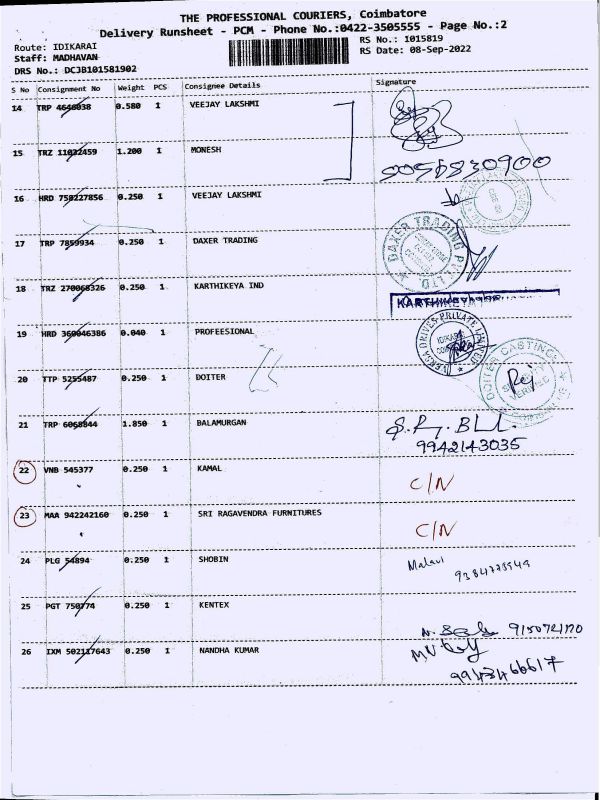 THE PROFESSIONAL COURIERS, Coimbatore
Delivery Runsheet - PCM - Phone No.:0422-3505555 - Page No.:2
Route: IDIKARAI
RS No.: I015819
Staff: MADHAVAN
RS Date: 08-Sep-2022
DRS No.: DCJB101581902
S No Consignment No Weight PCS Consignee Details Signature
14 TRP 4646038 0.580 1 VEEJAY LAKSHMI
15 TRZ 11032459 1.200 1 MONESH
16 HRD 758227856 0.250 1 VEEJAY LAKSHMI
17 TRP 7859934 0.250 1 DAXER TRADING
DAXER TRADING PVT LTD
18 TRZ 270068326 0.250 1 KARTHIKEYA IND
19 HRD 360046386 0.040 1 PROFEESIONAL
DRIVES PRIVATE LIMITED
20 TTP 5255487 0.250 1 DOITER
DOITER CASTINGS
SECURITY
VERIFIED
21 TRP 6068844 1.850 1 BALAMURGAN
9942143035
22 VNB 545377 0.250 1 KAMAL C/N
23 MAA 942242160 0.250 1 SRI RAGAVENDRA FURNITURES C/N
24 PLG 54894 0.250 1 SHOBIN Malavi
25 PGT 750774 0.250 1 KENTEX
26 IXM 502117643 0.250 1 NANDHA KUMAR
9943466617